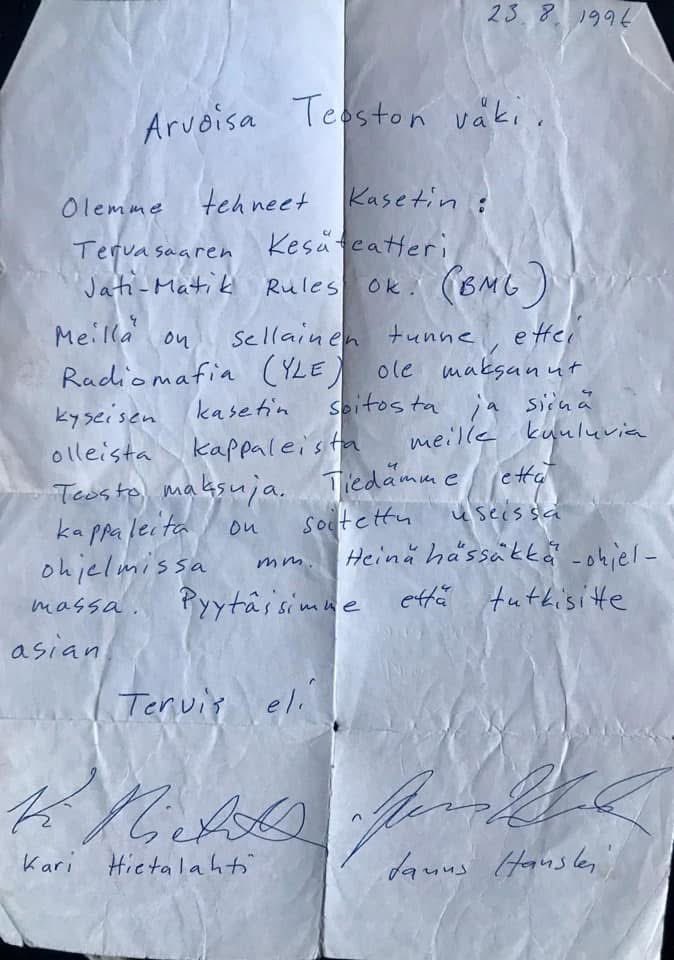 23.8.1996
Arvoisa Teoston väki.
Olemme tehneet Kasetin:
Tervasaaren Kesäteatteri
Jati-Matik Rules OK. (BMG)
Meillä on sellainen tunne, ettei
Radiomafia (YLE) ole maksanut
kyseisen kasetin soitosta ja siinä
olleista kappaleista meille kuuluvia
Teosto maksuja. Tiedämme että
kappaleita on soitettu useissa
ohjelmissa mm. Heinähässäkkä -ohjel-
massa. Pyytäisimme että tutkisitte
asian.
Tervis eli
Kari Hietalahti
Janus Hanski